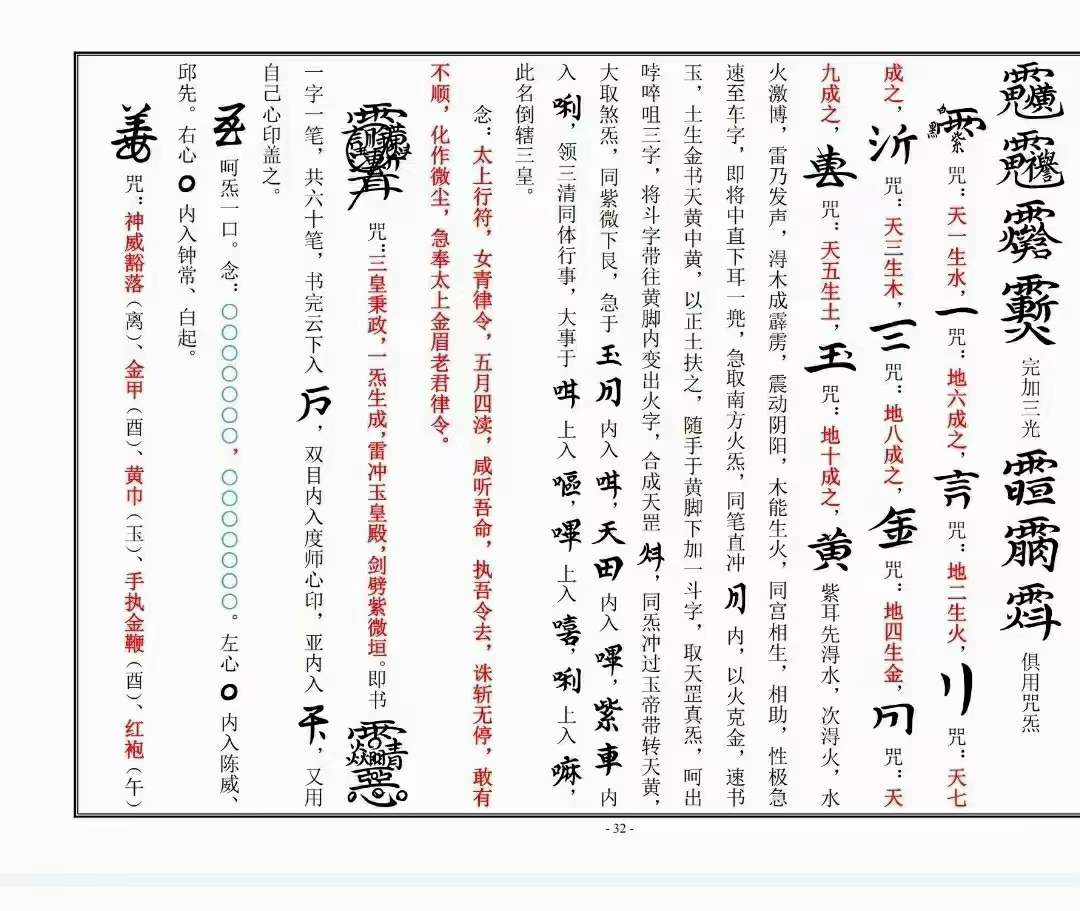 完加三光 俱用咒炁
紫 咒：天一生水，一 咒：地六成之，言 咒：地二生火，刂 咒：天七
成之，沂 咒：天三生木，三 咒：地八成之，金 咒：地四生金， 咒：天
九成之， 咒：天五生土，玉 咒：地十成之，黄 紫耳先淂水，次淂火，水
火激博，雷乃发声，淂木成霹雳，震动阴阳，木能生火，同宫相生，相助，性极急
速至车字，即将中直下耳一兜，急取南方火炁，同笔直冲 内，以火克金，速书
玉，土生金书天黄中黄，以正土扶之，随手于黄脚下加一斗字，取天罡真炁，呵出
哱啐咀三字，将斗字带往黄脚内变出火字，合成天罡 ，同炁冲过玉帝带转天黄，
大取煞炁，同紫微下艮，急于 玉 内入 ，天田 内入 嗶，紫車 内
入 唎，领三清同体行事，大事于 上入 嘔，嗶 上入 嘻，唎 上入 嘛，
此名倒辖三皇。
念：太上行符，女青律令，五月四渎，咸听吾命，执吾令去，诛斩无停，敢有
不顺，化作微尘，急奉太上金眉老君律令。
咒：三皇秉政，一炁生成，雷冲玉皇殿，剑劈紫微垣。即书
一字一笔，共六十笔，书完云下入 ，双目内入度师心印，亚内入 ，又用
自己心印盖之。
呵炁一口。念：〇〇〇〇〇〇〇，〇〇〇〇〇〇〇。左心 〇 内入陈威、
邱先。右心 〇 内入钟常、白起。
咒：神威豁落（离）、金甲（酉）、黄巾（玉）、手执金鞭（酉）、红袍（午）
- 32 -